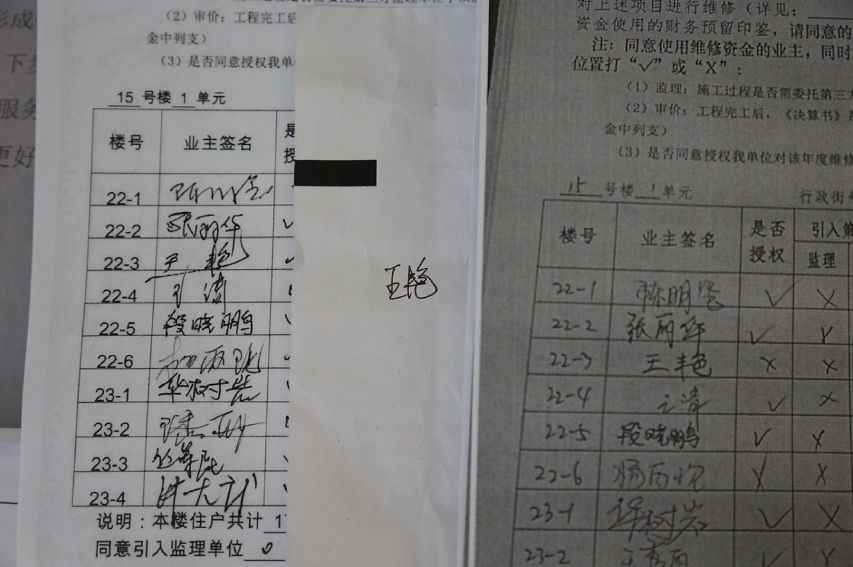 形成
下步
服务
更好
(2) 审价：工程完工后
金中列支）
(3) 是否同意授权我单
15 号楼 1 单元
楼号 业主签名 是 授
22-1
22-2 张丽华
22-3 王艳
22-4 王清
22-5 段晓鹏
22-6
23-1 华树岩
23-2
23-3
23-4
说明：本楼住户共计 1
同意引入监理单位 0
王艳
对上述项目进行维修（详见：
资金使用的财务预留印鉴，请同意的
注：同意使用维修资金的业主，同时
位置打“√”或“X”：
(1) 监理：施工过程是否需委托第三方
(2) 审价：工程完工后，《决算书》是
金中列支）
(3) 是否同意授权我单位对该年度维修
15 号楼 1 单元 行政街号
楼号 业主签名 是否授权 引入第 监理
22-1 陈明 √ X
22-2 张丽华 √ X
22-3 王艳 X X
22-4 王清 √ X
22-5 段晓鹏 √ X
22-6 X X
23-1 华树岩 √ X
23-2 √ X